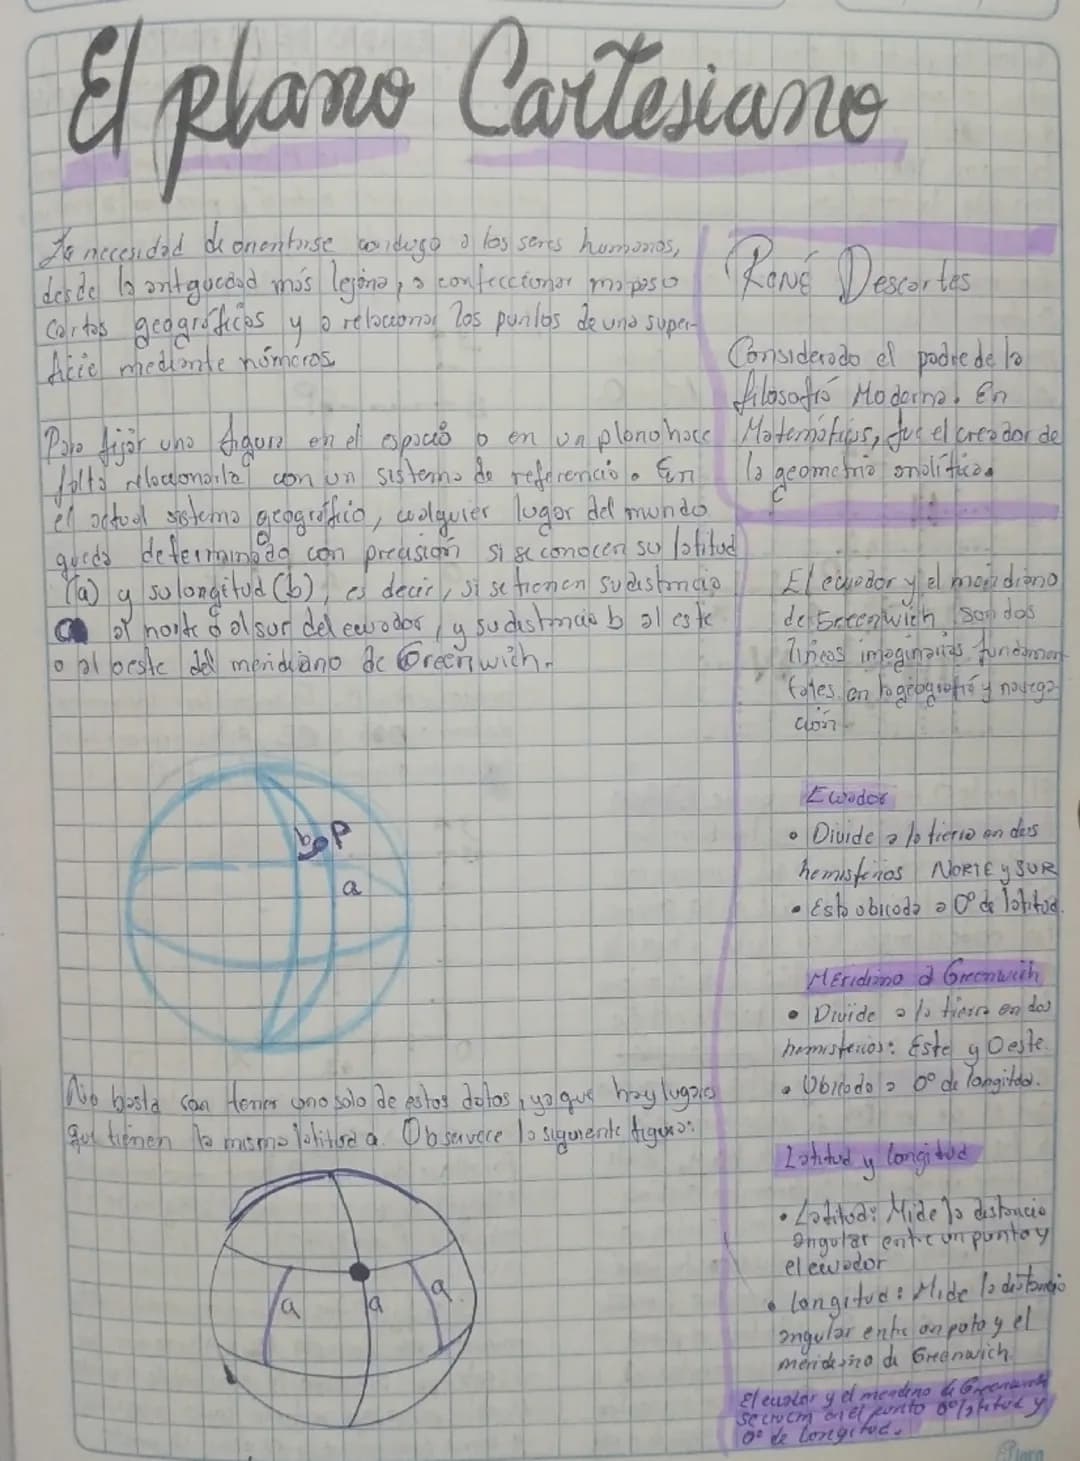 El plano Cartesiano
La necesidad de orientarse condujo a los seres humanos,
desde la antiguedad más lejana, a confeccionar mapas o
Cartas geográficas y a relacionar los puntos de una super-
ficie mediante números.
Para fijar una figura en el espacio o en un plano hace
falta relacionarla con un sistema de referencia. En
el actual sistema geográfico, cualquier lugar del mundo
queda determinado con precisión si se conocen su latitud
(a) y su longitud (b), es decir, si se tienen su distancia
a al norte o al sur del ecuador, y su distancia b al este
o al oeste del meridiano de Greenwich.
b P
a
No basta con tener uno solo de estos datos, ya que hay lugares
que tienen la misma latitud a. Observece la siguiente figura:
a a a
René Descartes
Considerado el padre de la
filosofía Moderna. En
Matemáticas, fue el creador de
la geometria analítica.
El ecuador y el meridiano
de Greenwich son dos
lineas imaginarias fundamen
tales en la geografía y navega-
ción.
Ecuador
• Divide a la tierra en dos
hemisferios NORTE y SUR
• Esta obicada a 0° de latitud.
Meridiano d Greenwich
• Divide a la tierra en dos
hemisferios: Este y Oeste.
• Obicado a 0° de longitud.
Latitud y longitud
• Latitud: Mide la distancia
angular entre un punto y
el ecuador
• longitud: Mide la distancia
angular entre un puto y el
meridiano de Greenwich.
El ecuador y el meridino de Greenwich
se crucan en el punto 0° latitud y
0° de longitud.